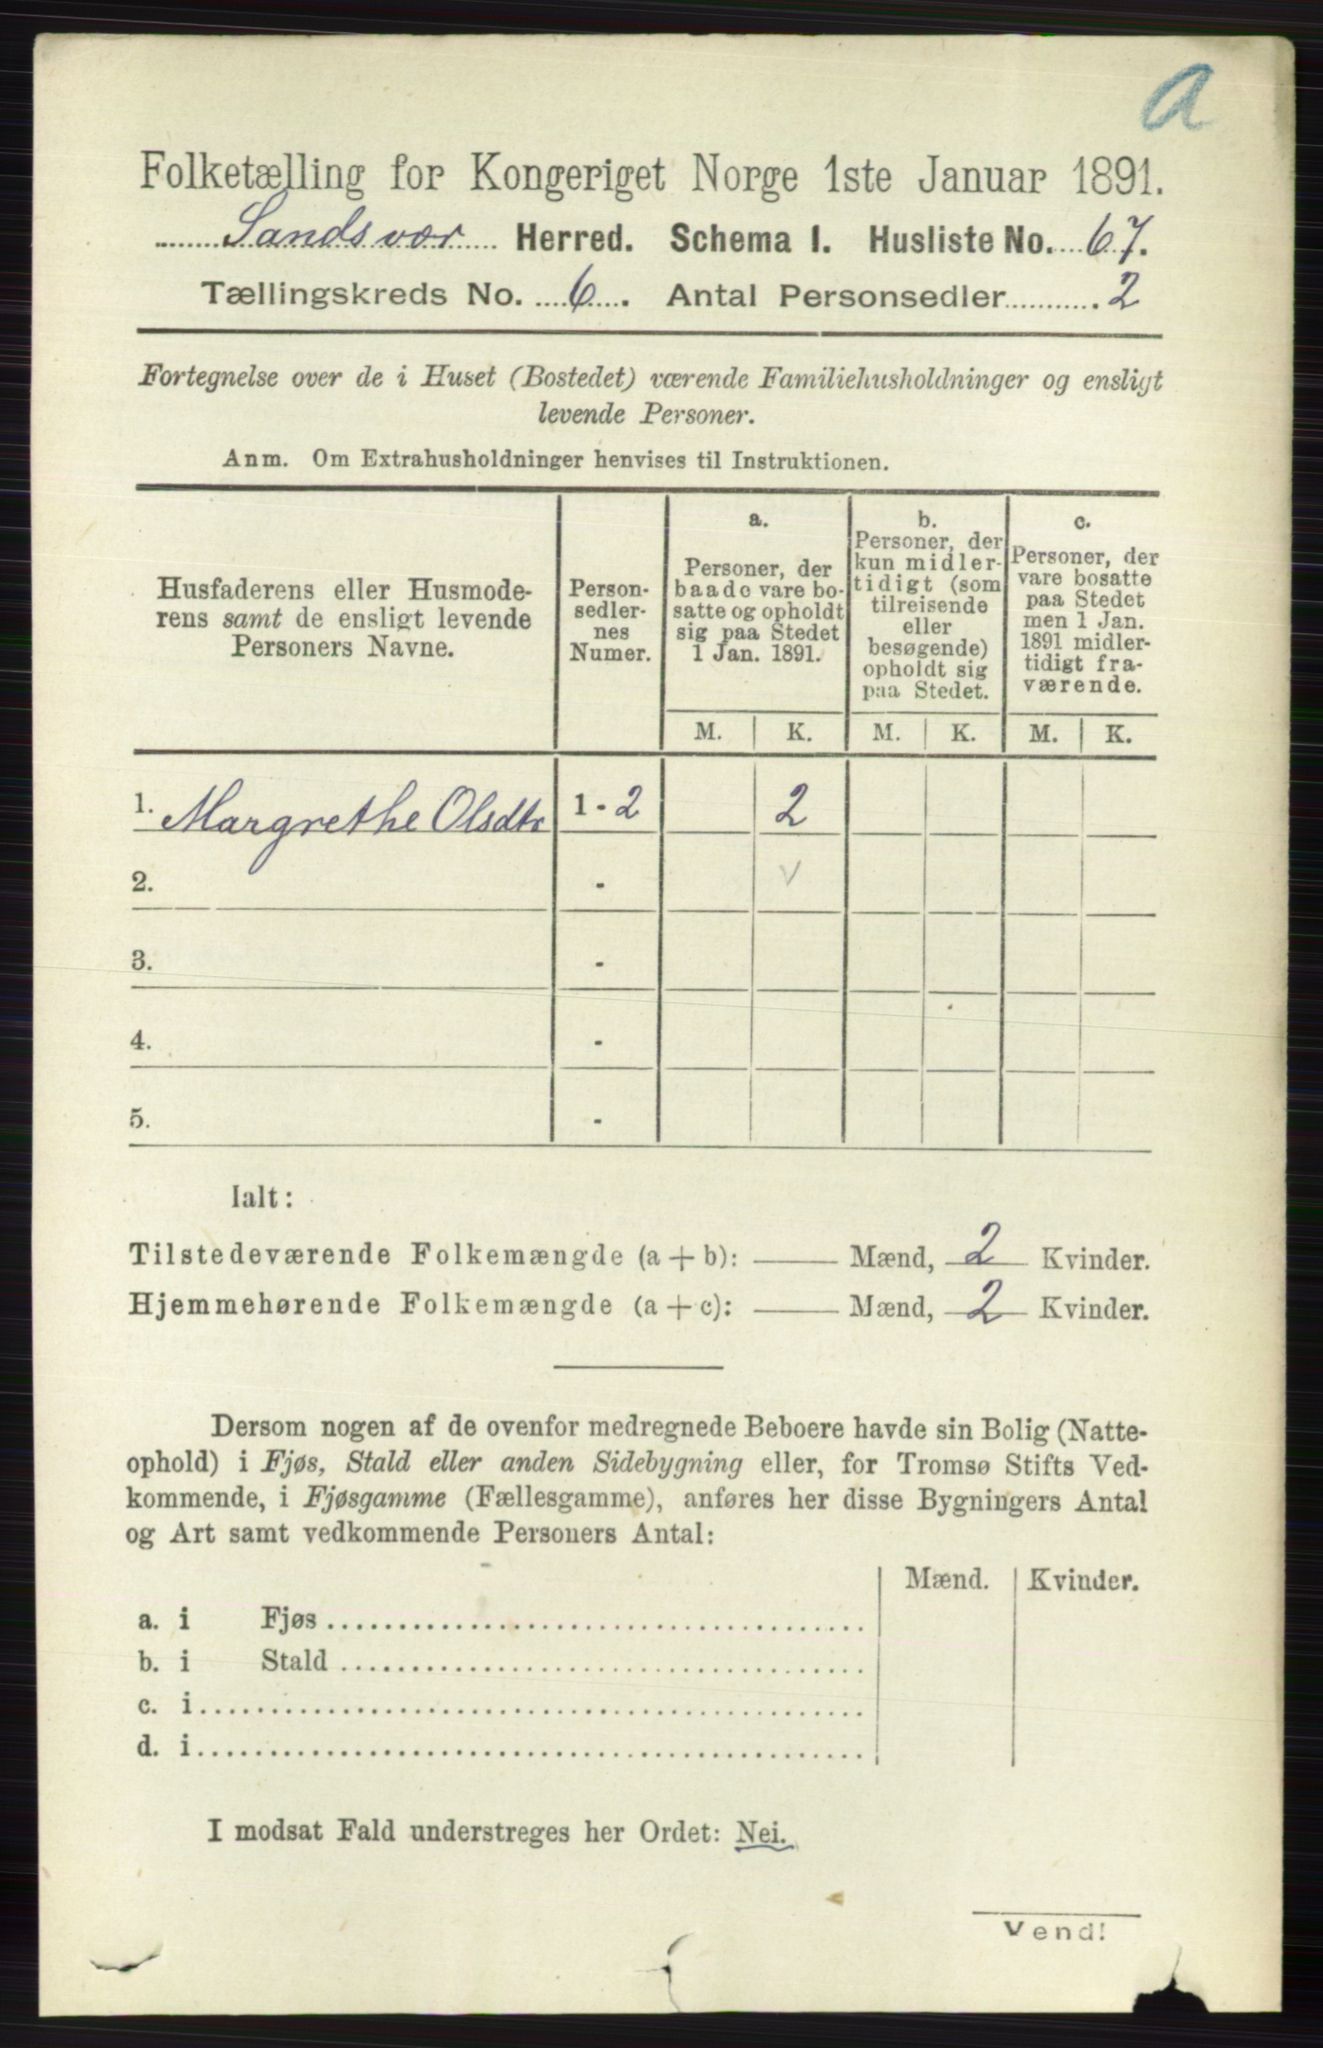 a
Folketælling for Kongeriget Norge 1ste Januar 1891.
Sandsvær Herred. Schema I. Husliste No. 67.
Tællingskreds No. 6. Antal Personsedler 2
Fortegnelse over de i Huset (Bostedet) værende Familiehusholdninger og ensligt
levende Personer.
Anm. Om Extrahusholdninger henvises til Instruktionen.
Husfaderens eller Husmode-
rens samt de ensligt levende
Personers Navne.
Person-
sedler-
nes
Numer.
a.
Personer, der
baade vare bo-
satte og opholdt
sig paa Stedet
1 Jan. 1891.
b.
Personer, der
kun midler-
tidigt (som
tilreisende
eller
besøgende)
opholdt sig
paa Stedet.
c.
Personer, der
vare bosatte
paa Stedet
men 1 Jan.
1891 midler-
tidigt fra-
værende.
M. K. M. K. M. K.
1. Margrethe Olsdtr 1 - 2 2
2. -
3. -
4. -
5. -
Ialt:
Tilstedeværende Folkemængde (a + b): — Mænd, 2 Kvinder.
Hjemmehørende Folkemængde (a + c): — Mænd, 2 Kvinder.
Dersom nogen af de ovenfor medregnede Beboere havde sin Bolig (Natte-
ophold) i Fjøs, Stald eller anden Sidebygning eller, for Tromsø Stifts Ved-
kommende, i Fjøsgamme (Fællesgamme), anføres her disse Bygningers Antal
og Art samt vedkommende Personers Antal:
Mænd. Kvinder.
a. i Fjøs
b. i Stald
c. i
d. i
I modsat Fald understreges her Ordet: Nei.
Vend!